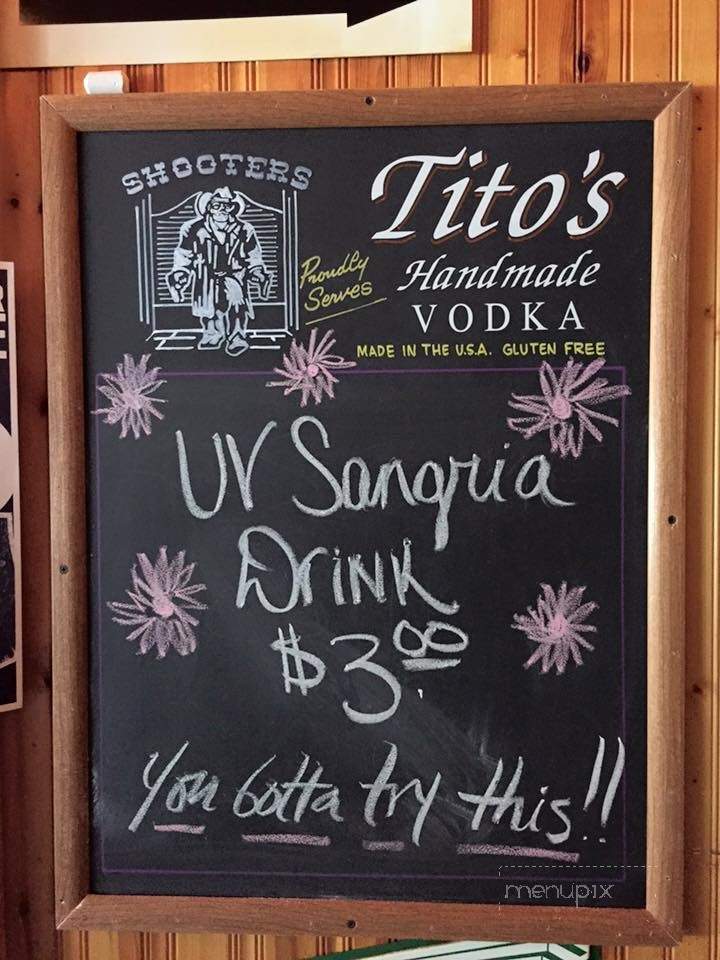 SHOOTERS
Proudly
Serves
Tito's
Handmade
VODKA
MADE IN THE U.S.A. GLUTEN FREE
UV Sangria
Drink
$3.00
You Gotta try this!!
menupix